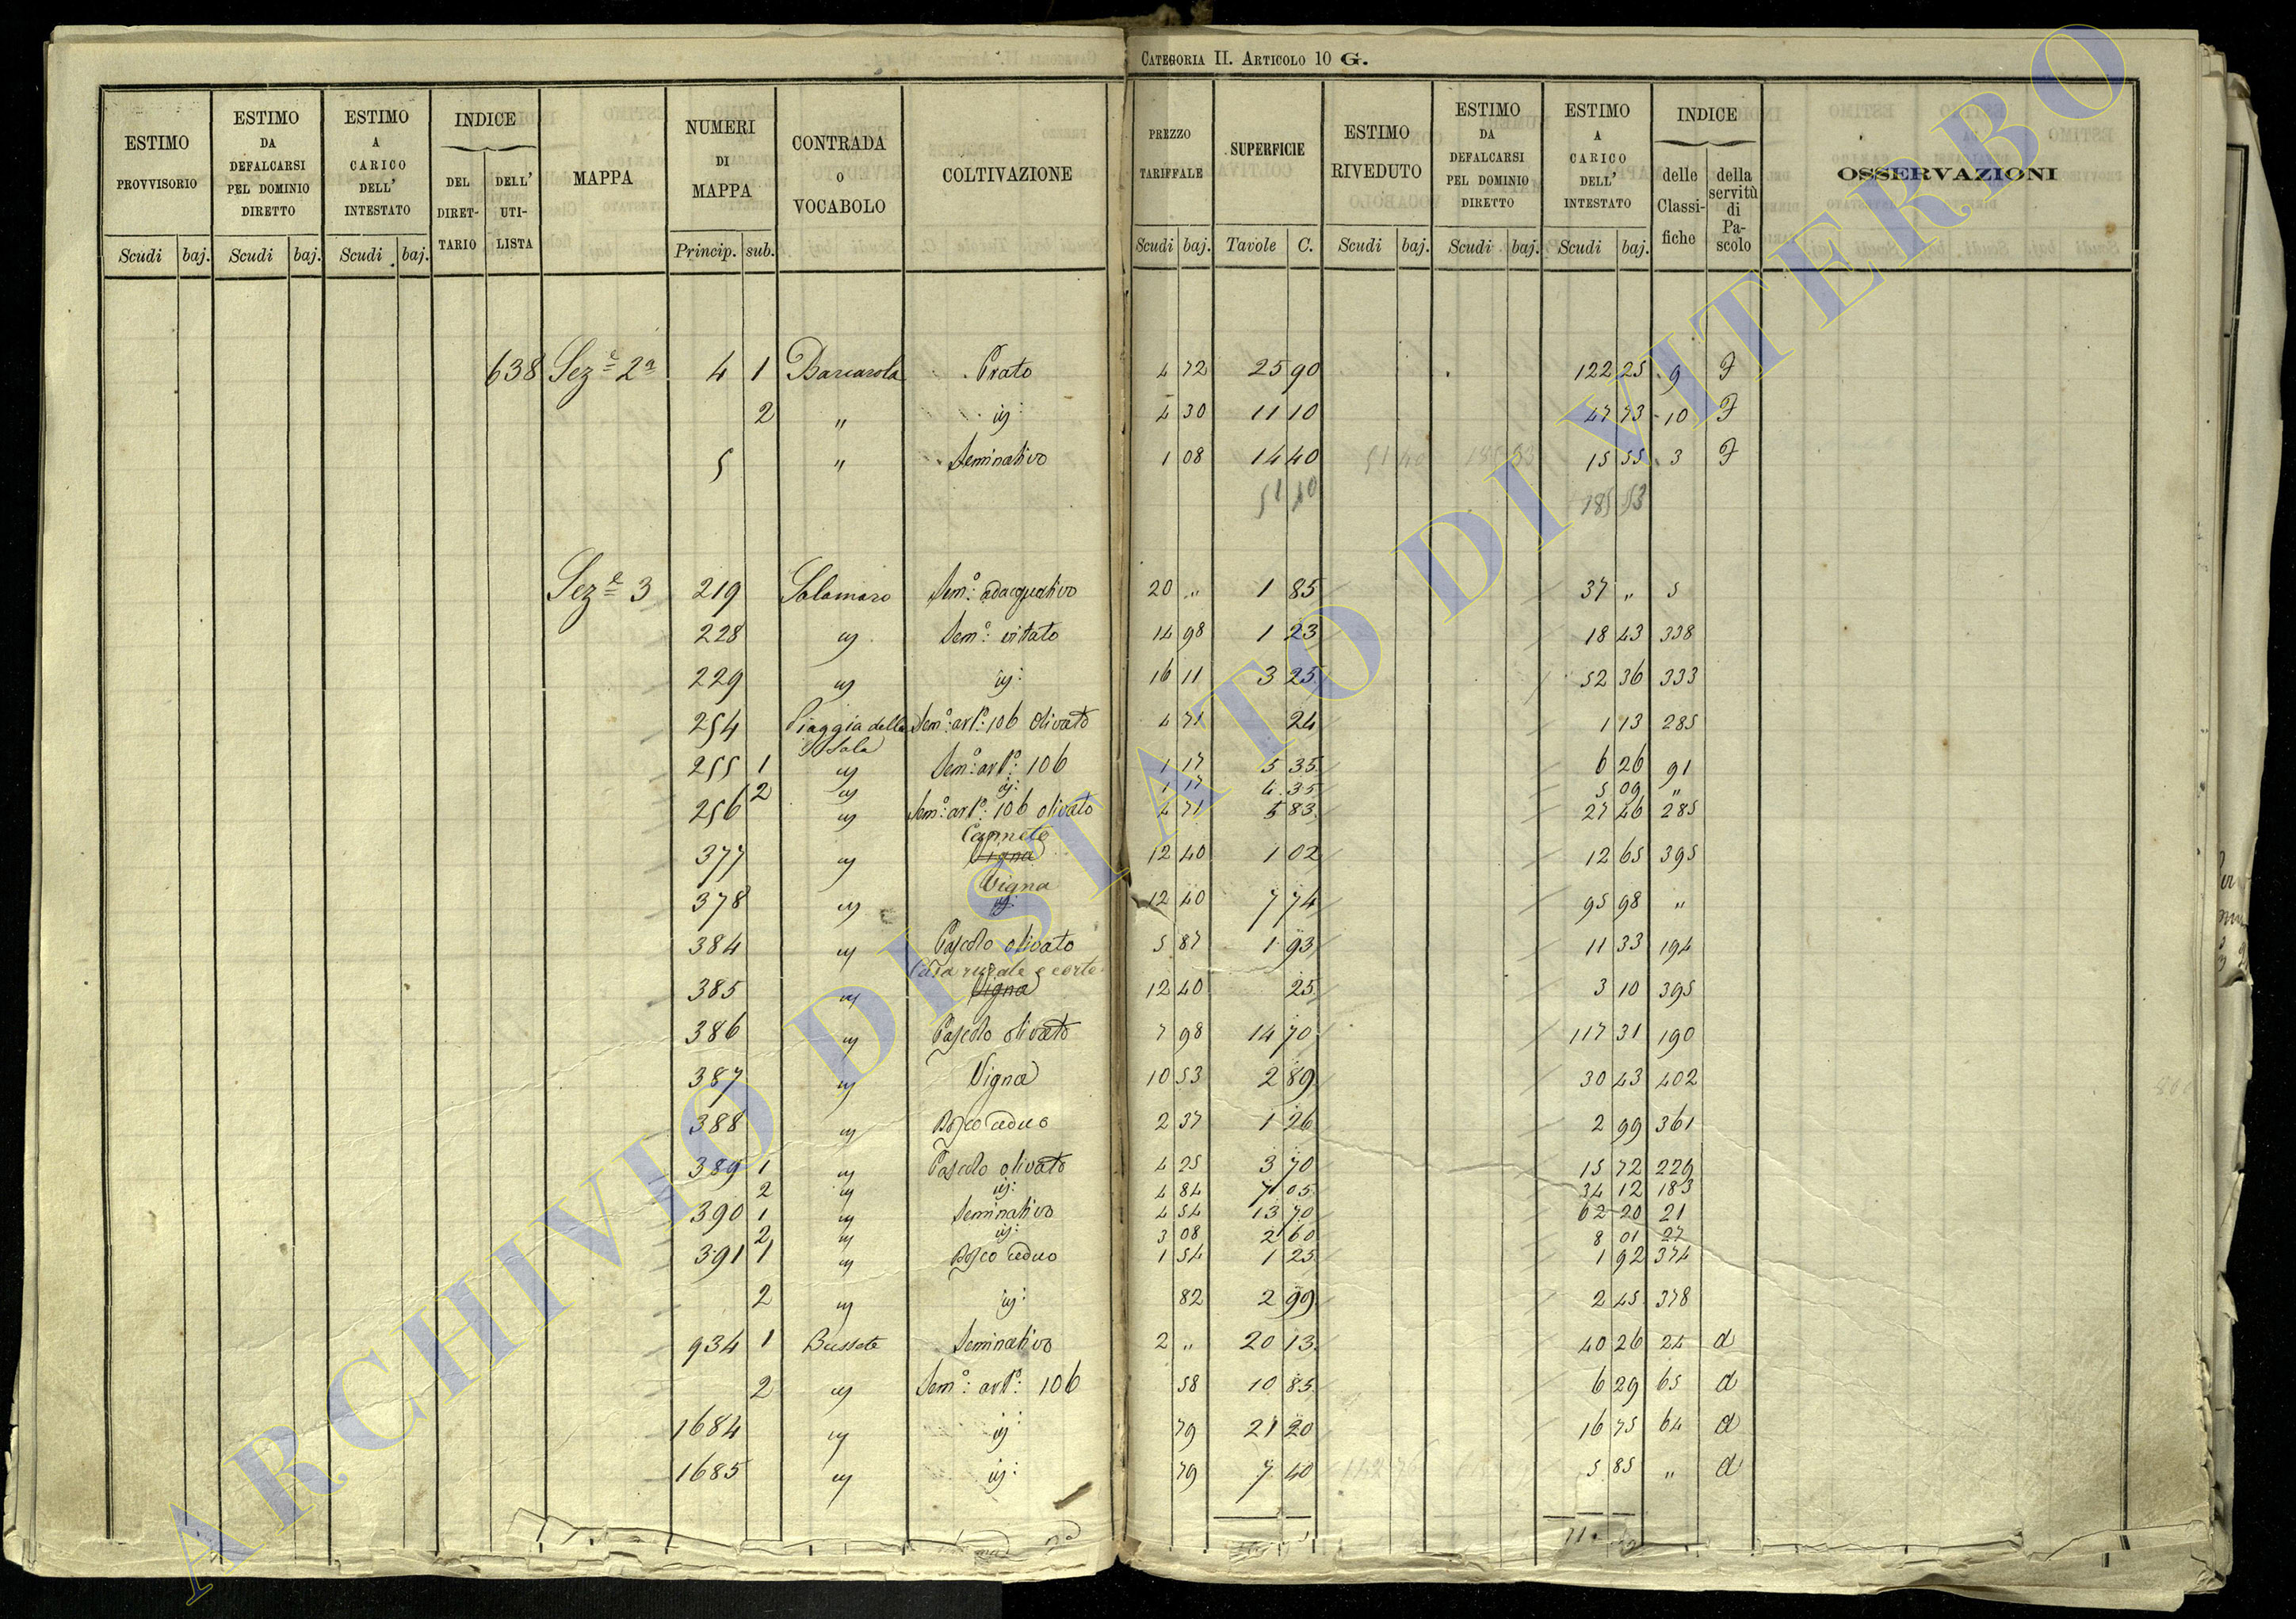 CATEGORIA II. ARTICOLO 10 G.
ESTIMO PROVVISORIO Scudi baj.
ESTIMO DA DEFALCARSI PEL DOMINIO DIRETTO Scudi baj.
ESTIMO A CARICO DELL' INTESTATO Scudi baj.
INDICE DEL DIRET-TARIO DELL' UTI-LISTA
MAPPA
NUMERI DI MAPPA Princip. sub.
CONTRADA O VOCABOLO
COLTIVAZIONE
PREZZO TARIFFALE Scudi baj.
SUPERFICIE Tavole C.
ESTIMO RIVEDUTO Scudi baj.
ESTIMO DA DEFALCARSI PEL DOMINIO DIRETTO Scudi baj.
ESTIMO A CARICO DELL' INTESTATO Scudi baj.
INDICE delle Classi-fiche della servitù di Pa-scolo
OSSERVAZIONI
638 Sez.e 2a 4 1 Barcarola Prato 4 72 25 90 122 25 9 F
2 " id: 4 30 11 10 47 73 10 F
5 " Seminativo 1 08 14 40 15 55 3 F
51 40 185 53
Sez.e 3 219 Salamaro Sem.o adacquativo 20 " 1 85 37 " 5
228 id Sem.o vitato 14 98 1 23 18 43 338
229 id id: 16 11 3 25 52 36 333
254 Piaggia della Sala Sem.o art.o 106 olivato 4 71 24 1 13 285
255 1 id Sem.o art.o 106 1 17 5 35 6 26 91
2 id id: 1 17 4 35 5 09 "
256 id Sem.o art.o 106 olivato 4 71 5 83 27 46 285
Canneto
377 id Vigna 12 40 1 02 12 65 395
Vigna
378 id id: 12 40 7 74 95 98 "
384 id Pascolo olivato 5 87 1 93 11 33 194
Casa rurale e corte
385 id Vigna 12 40 25 3 10 395
386 id Pascolo olivato 7 98 14 70 117 31 190
387 id Vigna 10 53 2 89 30 43 402
388 id Bosco ceduo 2 37 1 26 2 99 361
389 1 id Pascolo olivato 4 25 3 70 15 72 229
2 id id: 4 84 7 05 34 12 183
390 1 id Seminativo 4 54 13 70 62 20 21
2 id id: 3 08 2 60 8 01 27
391 1 id Bosco ceduo 1 54 1 25 1 92 374
2 id id: 82 2 99 2 45 378
934 1 Bussete Seminativo 2 " 20 13 40 26 24 d
2 id Sem.o art.o 106 58 10 85 6 29 65 d
1684 id id 79 21 20 16 75 64 d
1685 id id: 79 7 40 5 85 " d
ARCHIVIO DI STATO DI VITERBO